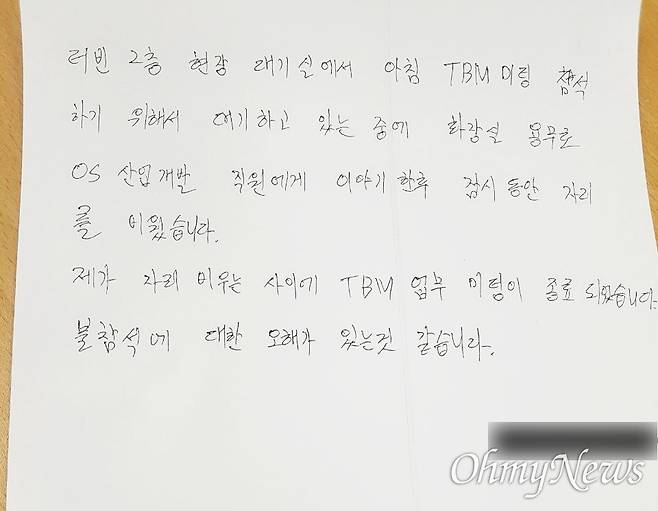 터빈 2층 현장 대기실에서 아침 TBM 미팅 참석
하기 위해서 여기하고 있는 중에 화장실 용무로
OS 산업개발 직원에게 이야기 한후 잠시 동안 자리
를 비웠습니다.
제가 자리 비우는 사이에 TBM 업무 미팅이 종료 되었습니다.
불참석에 대한 오해가 있는것 같습니다.
OhmyNews